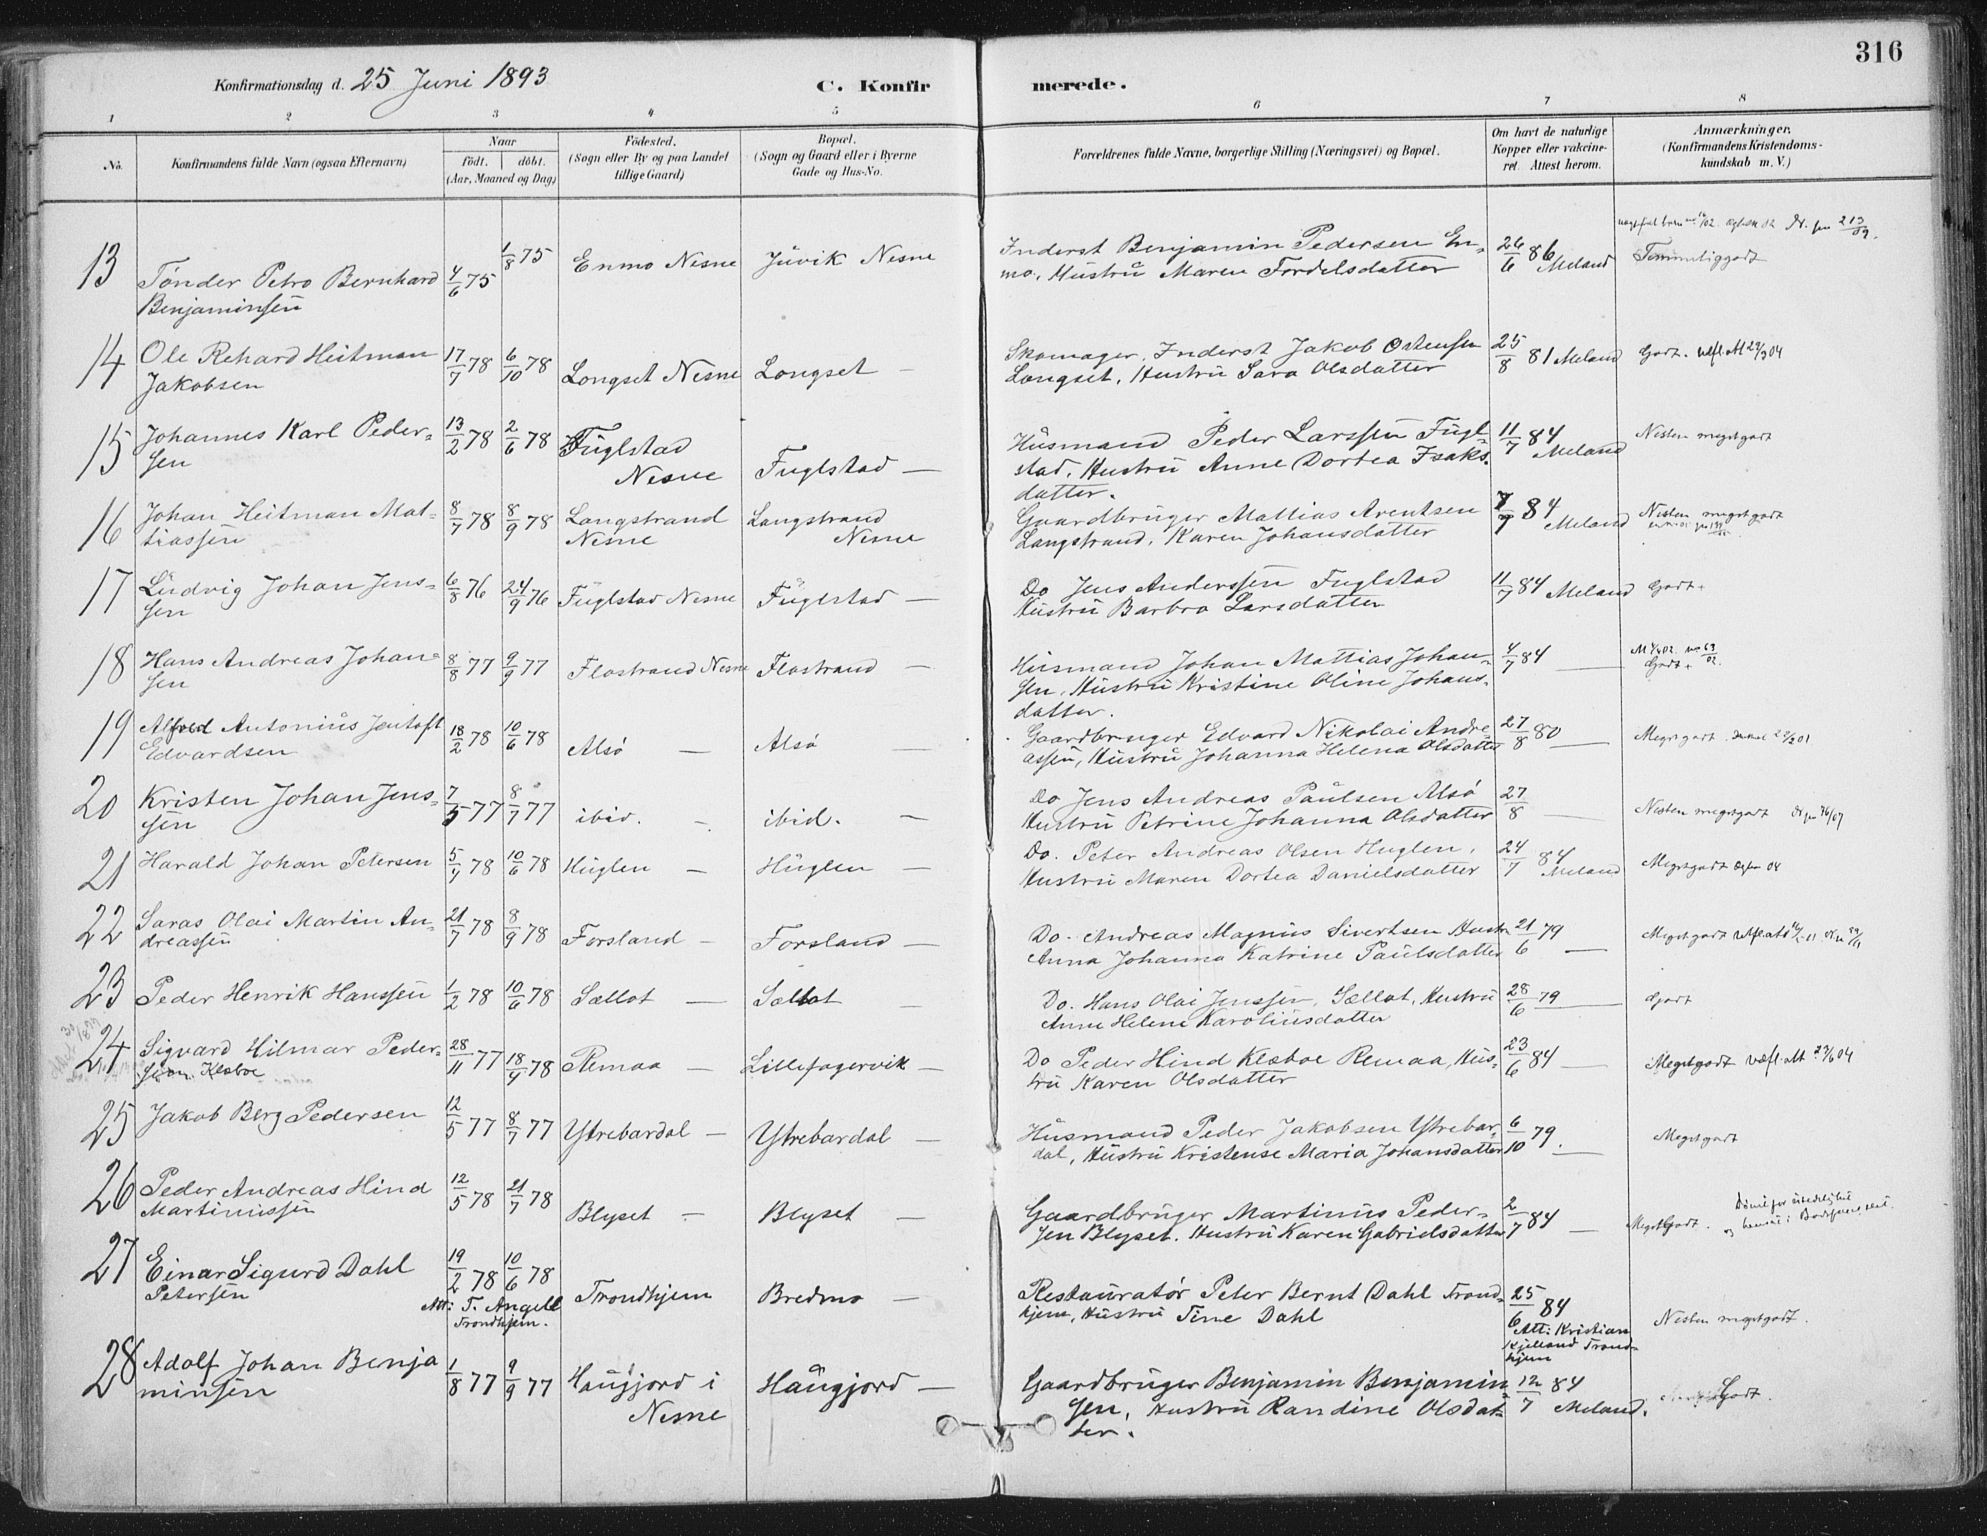 316
Konfirmationsdag d. 25 Juni 1893 C. Konfir merede.
1 2 3 4 5 6 7 8
No. Konfirmandens fulde Navn (ogsaa Efternavn) Naar født. døbt. (Aar, Maaned og Dag) Fødested. (Sogn eller By og paa Landet tillige Gaard) Bopæl. (Sogn og Gaard eller i Byerne Gade og Hus-No. Forældrenes fulde Navne, borgerlige Stilling (Næringsvei) og Bopæl. Om havt de naturlige Kopper eller vakcineret. Attest herom. Anmærkninger. (Konfirmandens Kristendomskundskab m. V.)
13 Tønder Petro Bernhard 4/6 75 1/8 75 Enmo Nesne Juvik Nesne Inderst Benjamin Pedersen En- 26/6 86 Meland Temmeliggodt
Benjaminsen mo, Hustru Maren Tordelsdatter
14 Ole Rehard Heitman 17/7 78 6/10 78 Longset Nesne Longset — Skomager, Inderst Jakob Ostensen 25/8 81 Meland Godt.
Jakobsen Longset, Hustru Sara Olsdatter
15 Johannes Karl Peder- 13/2 78 2/6 78 Fuglstad Husmand Peder Larssen Fugl- 11/7 84 Meland Nesten megetgodt
sen Nesne Fuglstad — stad, Hustru Anne Dortea Isaks-
datter.
16 Johan Heitman Mat- 8/7 78 8/9 78 Langstrand Langstrand Gaardbruger Mattias Arentsen 84 Meland Nesten megetgodt
tiassen Nesne Nesne Langstrand, Karen Johansdatter
17 Ludvig Johan Jens- 6/8 76 24/9 76 Fuglstad Nesne Fuglstad — Do Jens Anderssen Fuglstad 11/7 84 Meland Godt+
sen Hustru Barbro Larsdatter
18 Hans Andreas Johan- 8/8 77 9/9 77 Flostrand Nesne Flostrand — Husmand Johan Mattias Johan- 4/7 84 — Godt+
sen sen, Hustru Kristine Oline Johans-
datter.
19 Alfred Antonius Jentoft 18/2 78 10/6 78 Alsø — Alsø Gaardbruger Edvard Nikolai Andre- 27/8 80 — Megetgodt.
Edvardsen assen, Hustru Johanna Helena Olsdatter
20 Kristen Johan Jens- 7/5 77 8/7 77 ibid. — ibid. — Do Jens Andreas Paulsen Alsø 27/8 — Nesten megetgodt
sen Hustru Petrine Johanna Olsdatter
21 Harald Johan Petersen 78 10/6 78 Huglen — Huglen — Do. Peter Andreas Olsen Huglen, 24/7 84 Meland Megetgodt
Hustru Maren Dortea Danielsdatter
22 Saras Olai Martin An- 21/7 78 8/9 78 Forsland — Forsland — Do. Andreas Magnus Sivertsen Hustru 21/6 79 — Megetgodt
dreassen Anna Johanna Katrine Paulsdatter
23 Peder Henrik Hanssen 1/2 78 10/6 78 Sællot — Sællot — Do. Hans Olai Jenssen, Sællot, Hustru 28/6 79 — Godt
Anne Helene Karoliusdatter
24 Sigvard Hilmar Peder- 28/11 77 78 Remaa — Lillefagervik — Do Peder Hind Klæboe Remaa, Hus- 23/6 84 — Megetgodt
sen Klæboe tru Karen Olsdatter
25 Jakob Berg Pedersen 12/5 77 8/7 77 Ytrebardal — Ytrebardal — Husmand Peder Jakobsen Ytrebar- 6/10 79. — Megetgodt
dal, Hustru Kristense Maria Johansdatter
26 Peder Andreas Hind 12/5 78 21/7 78 Blyset — Blyset — Gaardbruger Martinus Peder- 2/7 84 — Megetgodt.
Martinussen sen Blyset. Hustru Karen Gabrielsdatter
27 Einar Sigurd Dahl 19/2 78 10/6 78 Trondhjem Bredmo — Restauratør Peter Bernt Dahl Trond- 25/6 84 Nesten megetgodt.
Petersen Att: T. Angell Trondhjem. hjem, Hustru Tine Dahl Att: Kristian Kjelland Trond-hjem
28 Adolf Johan Benja 1/8 77 9/9 77 Haugjord i Haugjord — Gaardbruger Benjamin Benjamin- 12/7 84 Meland. Godt.
minsen Nesne sen, Hustru Randine Olsdat-
ter.